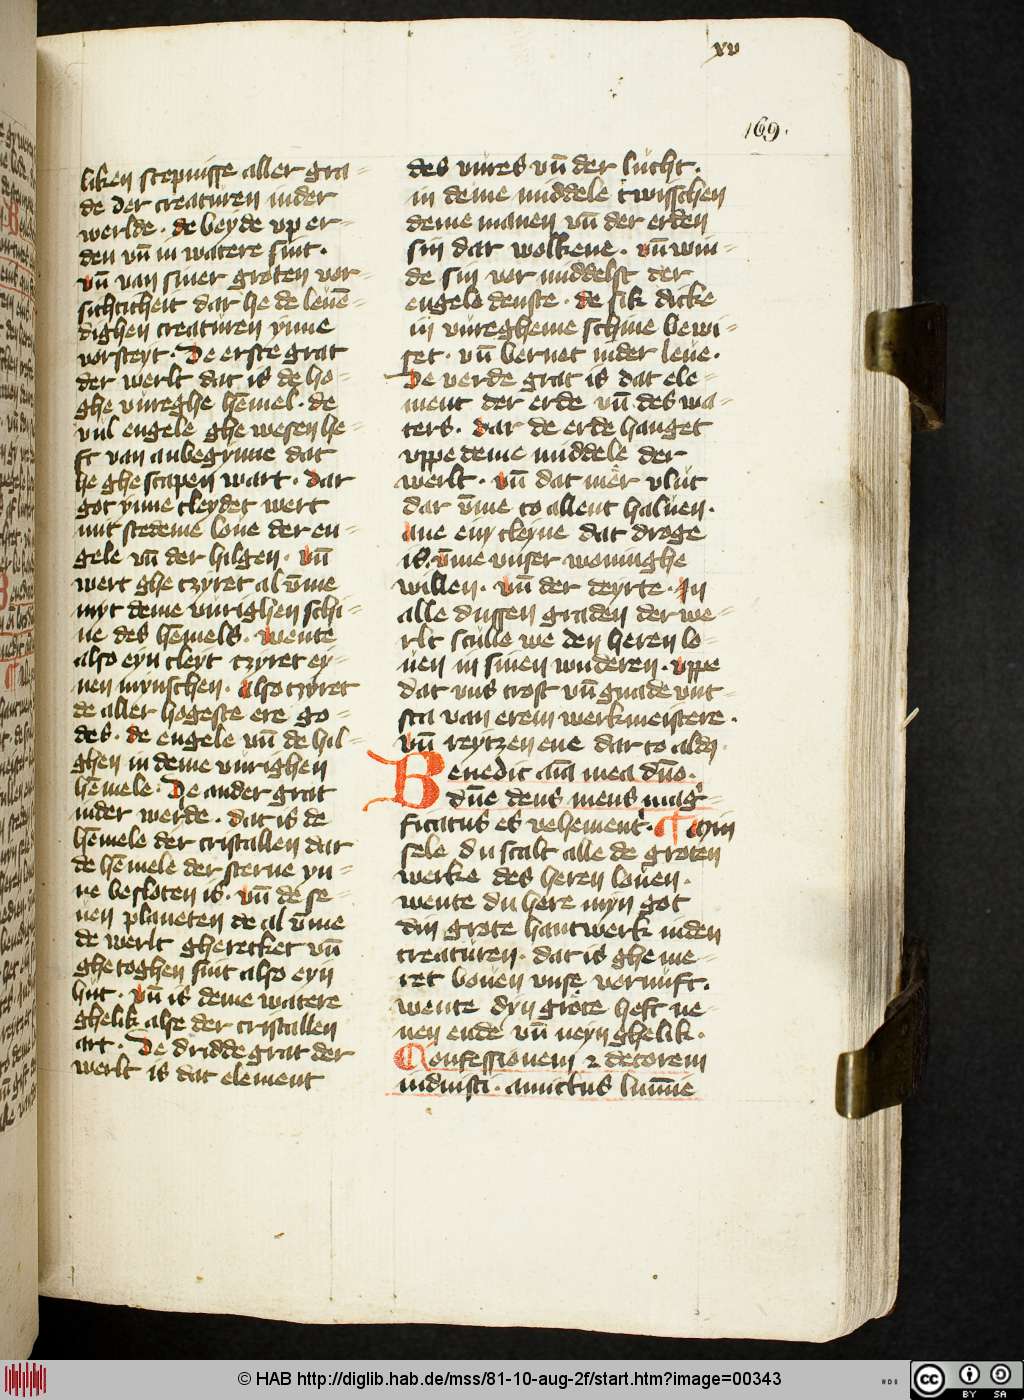 xv
169.
liken scepnisse aller gra=
de der creaturen inder
werlde. de beyde vp er=
den vn̄ in watere sint.
vn̄ van siner groten vor=
sichticheit dar he de leuē=
dighen creaturen ynne
vorsteyt. De erste grat
der werlt dat is de ho=
ghe vureghe hēmel. de
vul engele ghe wesen he=
ft van anbegynne dat
he ghe scapen wart. dar
got ynne cleydet wert
mit stedeme loue der en=
gele vn̄ der hilgen. vn̄
wert ghe tzyret al v̄me
myt deme vurighen schi=
ne des hēmels. wente
also eyn cleyt tzyret ey=
nen mynschen. also tzyret
de aller hogeste ere go=
des. de engele vn̄ de hil=
ghen in deme vurighen
hēmele. De ander grat
inder werde. dat is de
hēmele der cristallen dar
de hēmele der sterne yn=
ne besloten is. vn̄ de se=
uen planeten de al v̄me
de werlt gherecket vn̄
ghe toghen sint also eyn
hut. vn̄ is deme watere
ghelik alse der cristallen
art. De dridde grat der
werlt is dat element
des vures vn̄ der lucht.
in deme middele twisschen
deme manen vn̄ der erden
sin dar wolkene. vn̄ win=
de sin vor middelst der
engele denste. de sik dicke
in vuregheme schine bewi=
set. vn̄ bernet inder leue.
De verde grat is dat ele=
ment der erde vn̄ des wa=
ters. dar de erde hanget
vppe deme middele der
werlt. vn̄ dat mer vlut
dar v̄me to allent haluen.
ane eyn cleyne dat droge
is. v̄me vnser woninghe
willen. vn̄ der deyrte. In
alle dussen graden der we=
rlt sculle we den heren lo=
uen in sinen wnderen. vppe
dat vns trost vn̄ gnade vnt=
sta van erem werkmeistere.
vn̄ reytzen ene dar to aldꝯ.
Benedic aīa mea dn̄o.
dn̄e deus meus mag=
ficatus es vehement͛. ¶ Myn
sele du scalt alle de groten
werke des heren louen.
wente du here myn got
din grote hantwerk inden
creaturen. dat is ghe me=
ret bouen vnse vornuft.
wente dyn grote heft ne=
nen ende vn̄ neyn ghelik.
Confessionem ⁊ decorem
induisti. amictus lumīne
© HAB http://diglib.hab.de/mss/81-10-aug-2f/start.htm?image=00343
cc
BY SA